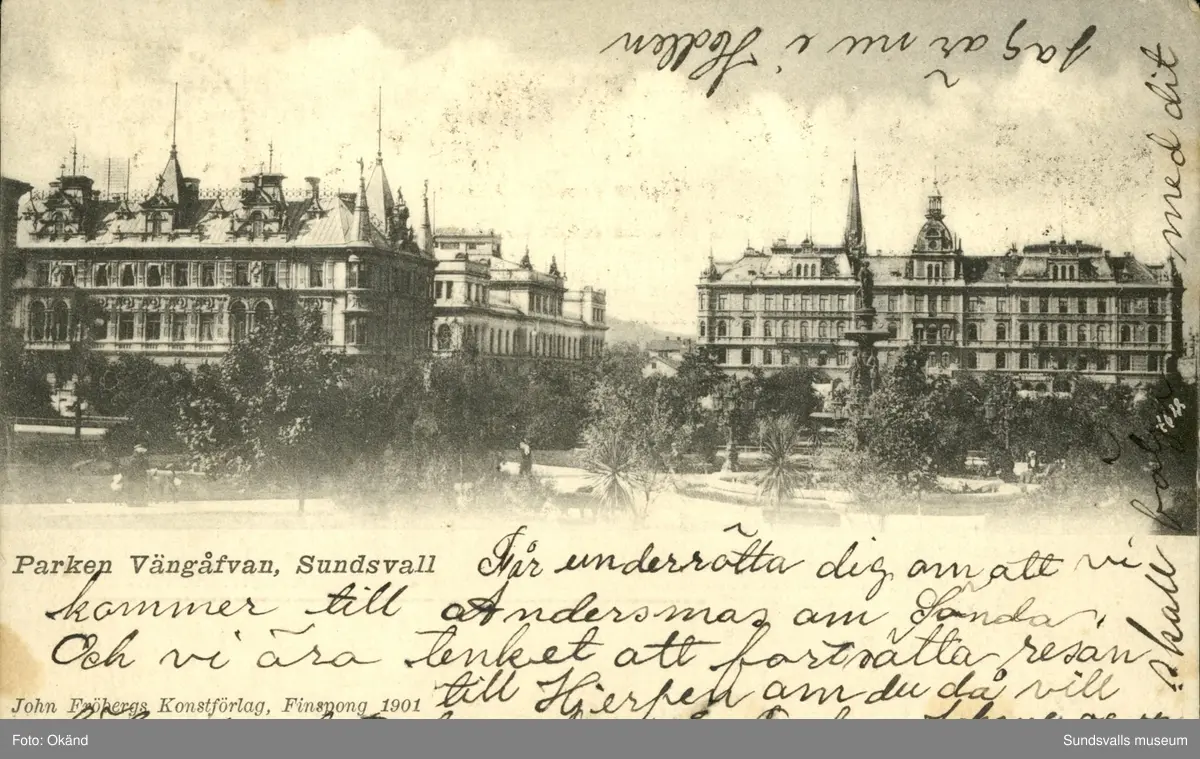 Jag är nu i Hoglen
med dit
följa
skall
Parken Vängåfvan, Sundsvall
Får underrätta dig om att vi
kommer till Andersmas om Sönda,
Och vi ära tenket att fortsätta resan
till Hjerpen om du då vill
John Fröbergs Konstförlag, Finspong 1901
Foto: Okänd
Sundsvalls museum